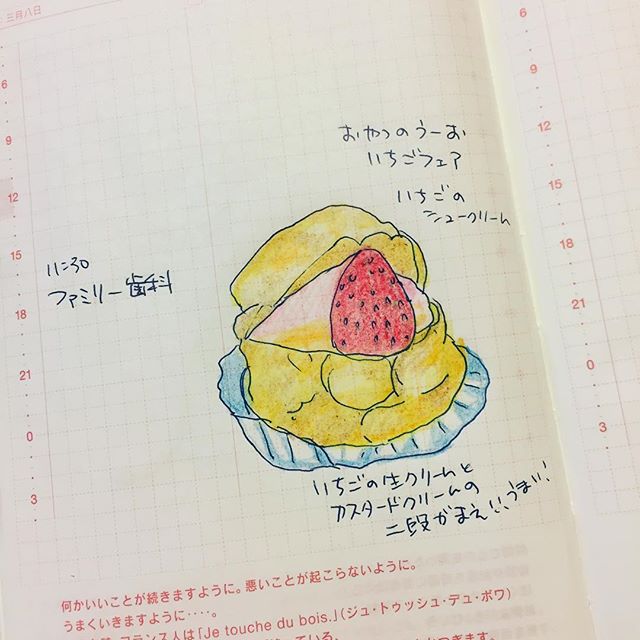 三月八日
6
9
12
15
18
21
0
3
6
9
12
15
18
21
0
3
おやつのうーお
いちごフェア
いちごの
シュークリーム
11:30
ファミリー歯科
いちごの生クリームと
カスタードクリームの
二段がまえ!!うまい!
何かいいことが続きますように。悪いことが起こらないように。
うまくいきますように‥‥。
フランス人は「Je touche du bois.」(ジュ・トゥッシュ・デュ・ボワ)